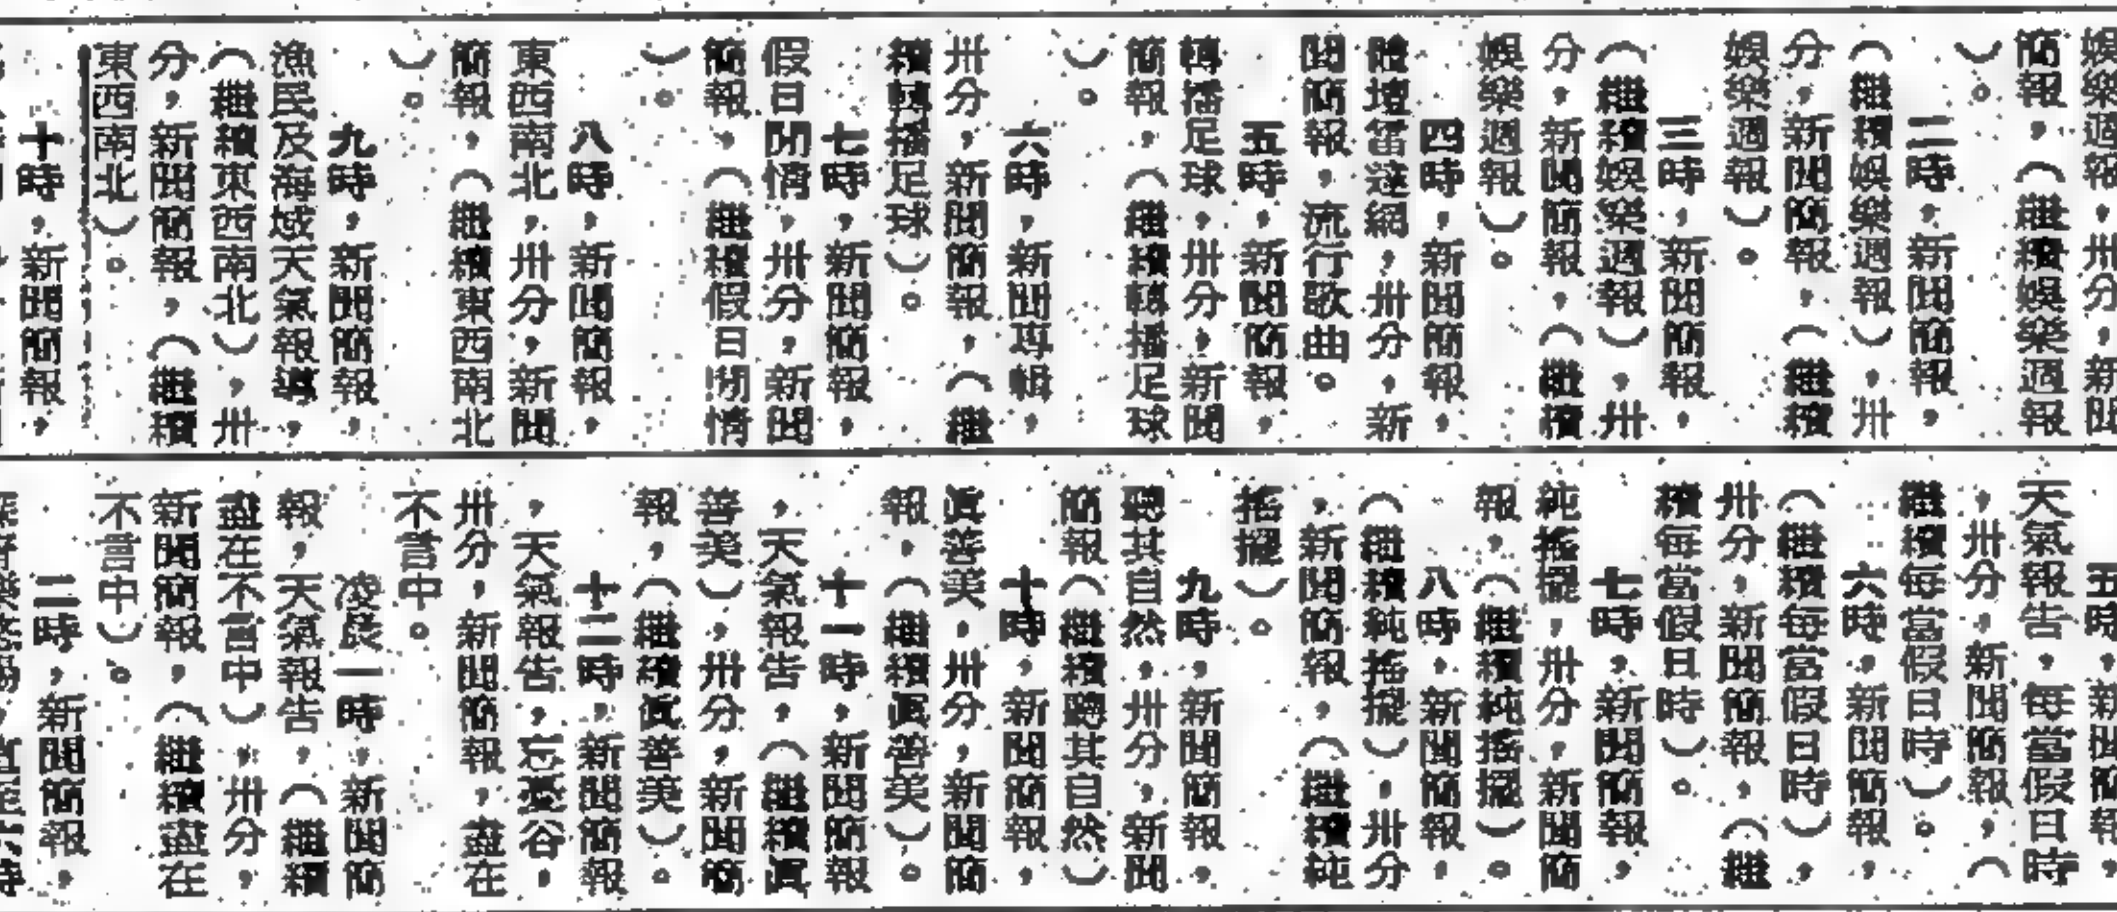 娛樂週報，卅分，新聞
簡報，（繼續娛樂週報
）。
二時，新聞簡報，
（繼續娛樂週報），卅
分，新聞簡報，（繼續
娛樂週報）。
三時，新聞簡報，
（繼續娛樂週報），卅
分，新聞簡報，（繼續
娛樂週報）。
四時，新聞簡報，
體壇雷達網，卅分，新
聞簡報，流行歌曲。
五時，新聞簡報，
轉播足球，卅分，新聞
簡報，（繼續轉播足球
）。
六時，新聞專輯，
卅分，新聞簡報，（繼
續轉播足球）。
七時，新聞簡報，
假日閒情，卅分，新聞
簡報，（繼續假日閒情
）。
八時，新聞簡報，
東西南北，卅分，新聞
簡報，（繼續東西南北
）。
九時，新聞簡報，
漁民及海域天氣報導，
（繼續東西南北），卅
分，新聞簡報，（繼續
東西南北）。
十時，新聞簡報，
五時，新聞簡報，
天氣報告，每當假日時
，卅分，新聞簡報，（
繼續每當假日時）。
六時，新聞簡報，
（繼續每當假日時），
卅分，新聞簡報，（繼
續每當假日時）。
七時，新聞簡報，
純搖擺，卅分，新聞簡
報，（繼續純搖擺）。
八時，新聞簡報，
（繼續純搖擺），卅分
，新聞簡報，（繼續純
搖擺）。
九時，新聞簡報，
聽其自然，卅分，新聞
簡報（繼續聽其自然）
十時，新聞簡報，
眞善美，卅分，新聞簡
報，（繼續眞善美）。
十一時，新聞簡報
，天氣報告，（繼續眞
善美），卅分，新聞簡
報，（繼續眞善美）。
十二時，新聞簡報
，天氣報告，忘憂谷，
卅分，新聞簡報，盡在
不言中。
凌晨一時，新聞簡
報，天氣報告，（繼續
盡在不言中），卅分，
新聞簡報，（繼續盡在
不言中）。
二時，新聞簡報，